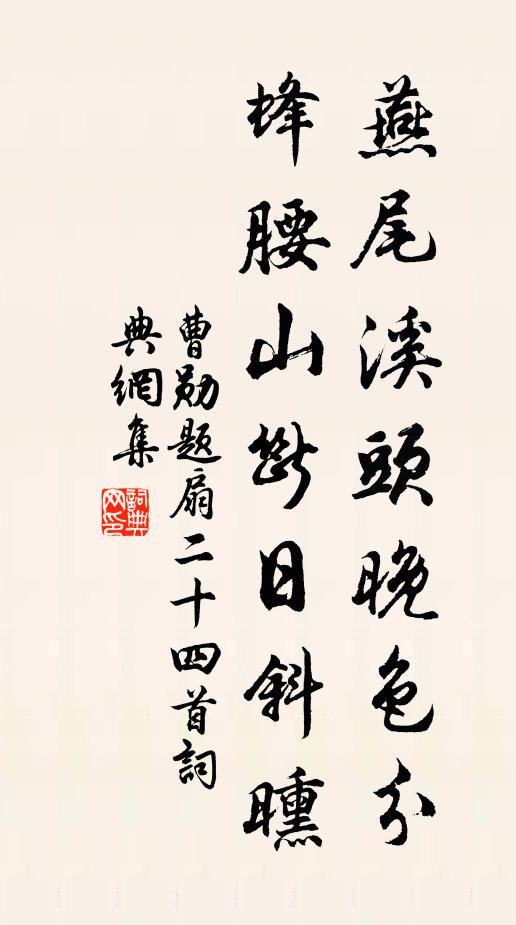 燕尾溪頭晚色分
蜂腰山斷日斜曛
曹勛題扇二十四首詞
典網集
詞典網印